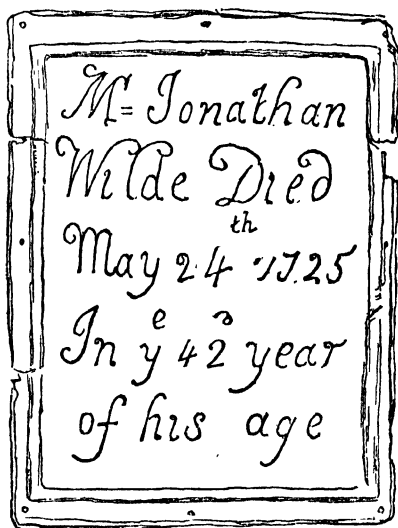 Mr= Ionathan
Wilde Died
May 24th 1725
In ye 42 year
of his age